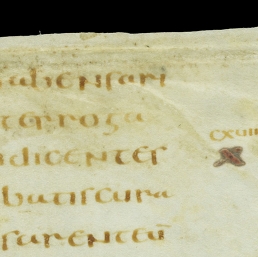 abens ari
terroga
dicentes
batis cura
sarent eū